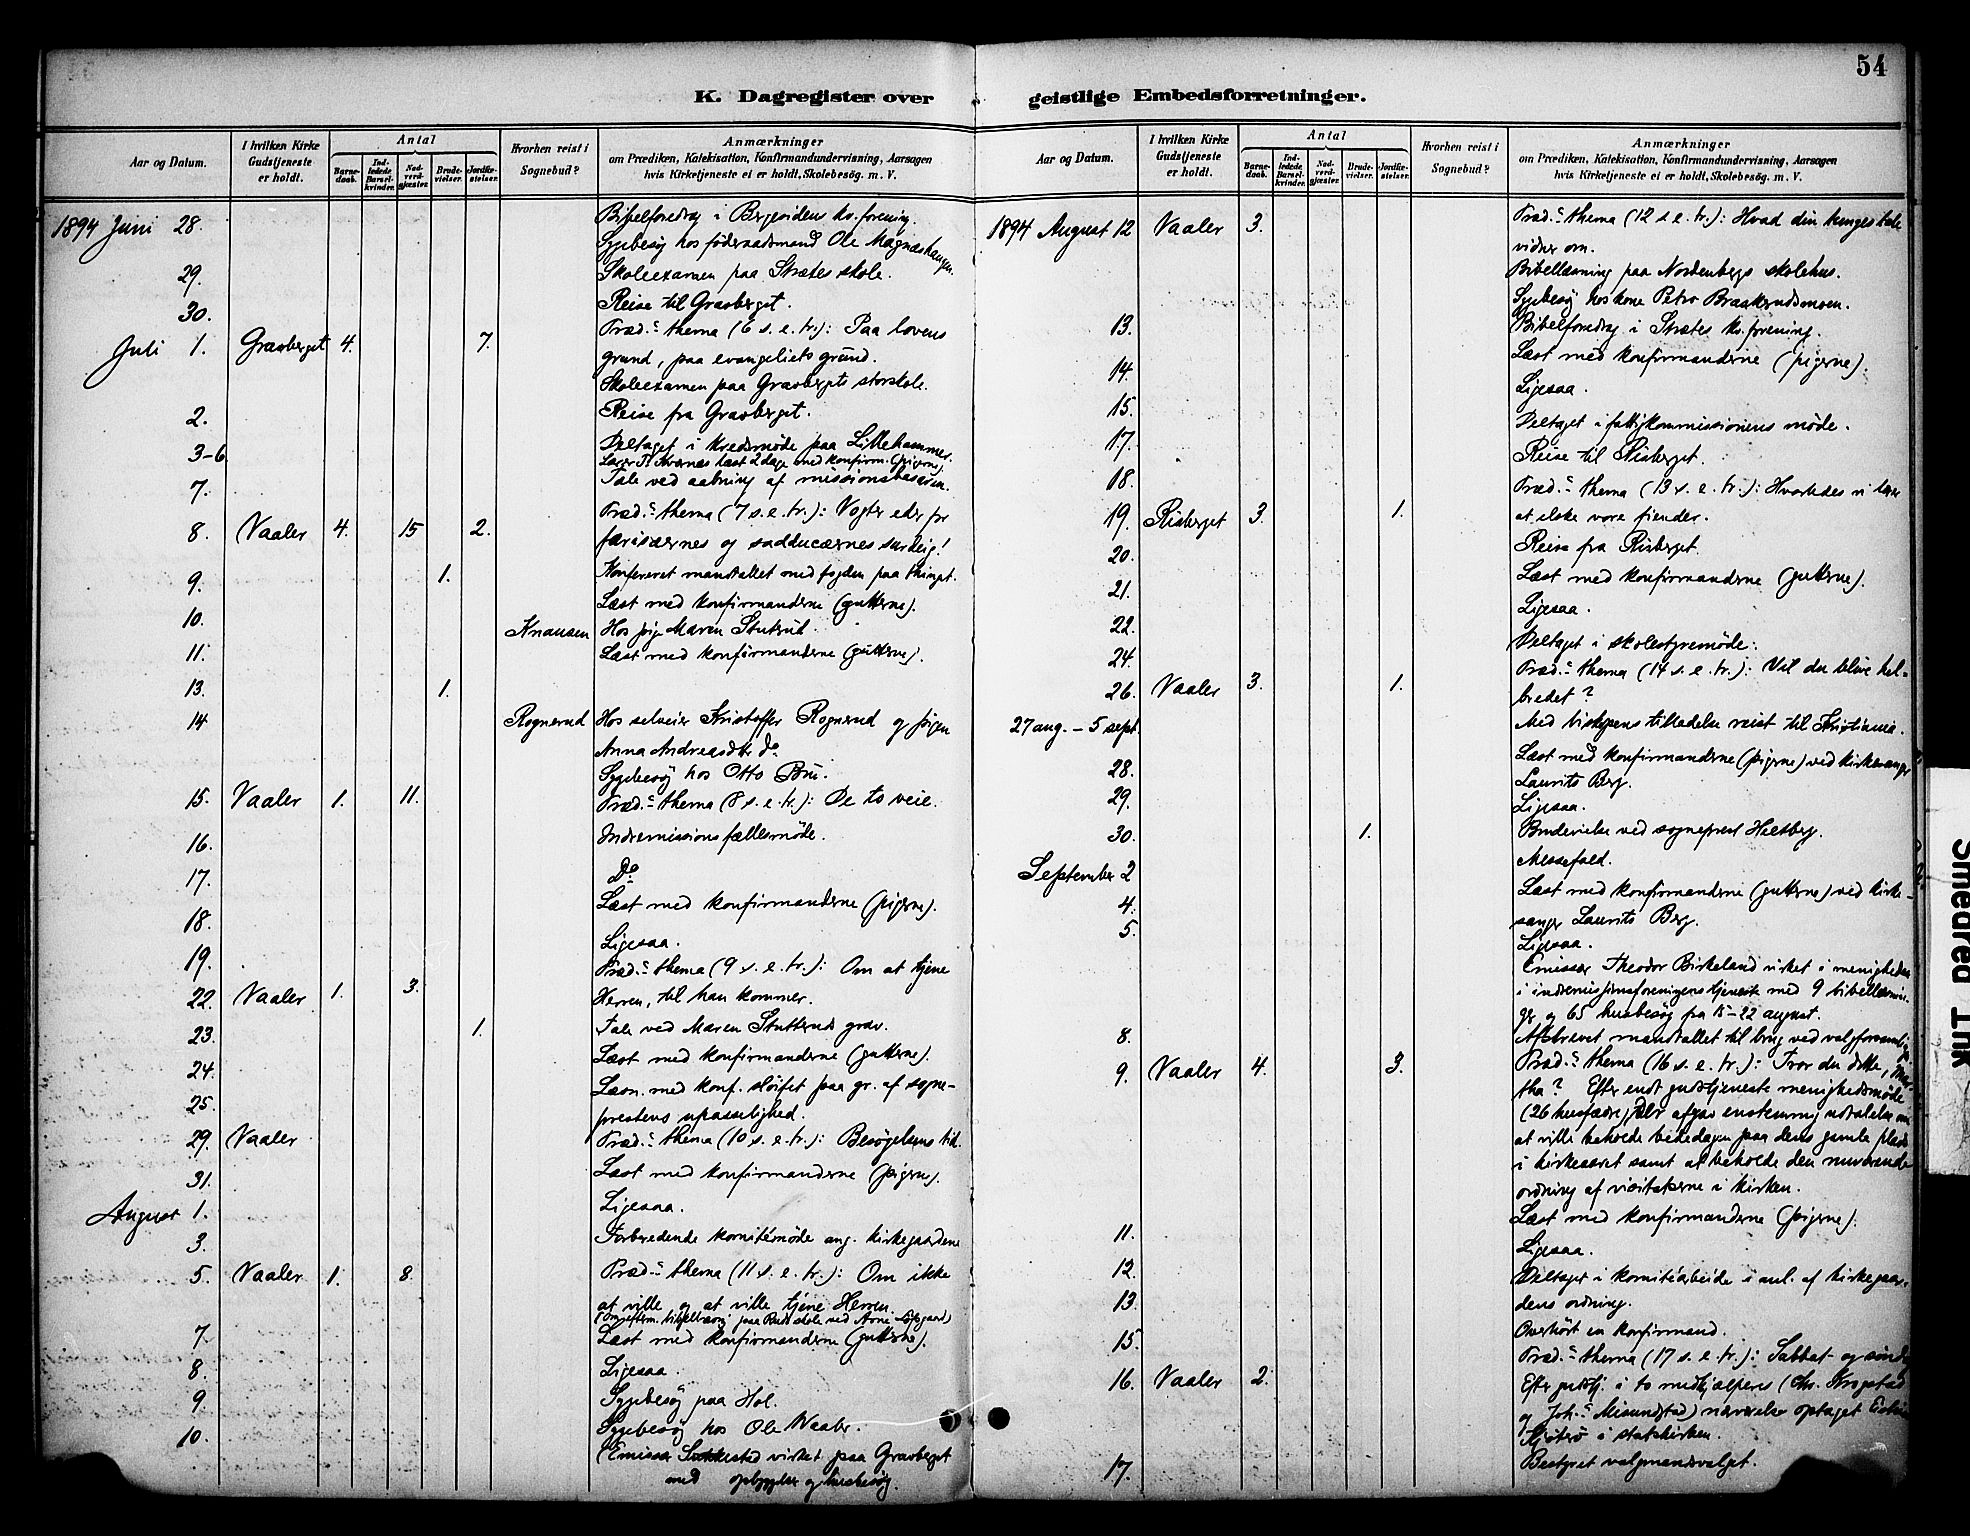 54
K. Dagregister over geistlige Embedsforretninger.
Aar og Datum.
I hvilken Kirke Gudstjeneste er holdt.
Antal
Barnedaab.
Indledede Barselkvinder.
Nadverdgjæster.
Brudevielser.
Jordfæstelser.
Hvorhen reist i Sognebud?
Anmærkninger
om Prædiken, Katekisation, Konfirmandundervisning, Aarsagen
hvis Kirketjeneste ei er holdt, Skolebesøg. m. V.
1894 Juni 28. Bibelforedrag i Bergesidens kv.forening.
Sygebesøg hos føderaadsmand Ole Magnæshaugen.
29. Skoleexamen paa Strætes skole.
30. Reise til Gravberget.
Juli 1. Gravberget 4. 7. Præd.s thema (6 s. e. tr.): Paa lovens
grund, paa evangeliets grund.
Skoleexamen paa Gravbergets storskole.
2. Reise fra Gravberget.
3-6 Deltaget i kredsmøde paa Lillehammer.
læst 2 dage med konfirm. (pigerne).
7. Tale ved aabning af missionsbasaren.
8. Vaaler 4. 15 2. Præd.s thema (7 s. e. tr.): Vogter eder for
farisæernes og sadducæernes surdeig!
9. 1. Konfereret mandtallet med fogden paa thinget.
10. Læst med konfirmanderne (gutterne).
Knausen Hos pige Maren Stutrud.
11. Læst med konfirmanderne (gutterne).
13. 1.
14 Rognerud Hos selveier Kristoffer Rognerud og pigen
Anna Andreasdtr do.
Sygebesøg hos Otto Bru.
15. Vaaler 1. 11. Præd.s thema (8 s. e. tr.): De to veie.
16. Indremissionsfællesmøde.
17. Do
18. Læst med konfirmanderne (pigerne).
19. Ligesaa.
22. Vaaler 1. 3. Præd.s thema (9 s. e. tr.): Om at tjene
Herren, til han kommer.
23. 1. Tale ved Maren Stutteruds grav.
24. Læst med konfirmanderne (gutterne).
25. Læsn. med konf. sløifet paa gr. af sogne-
prestens upasselighed.
29. Vaaler Præd.s thema (10 s. e. tr.): Besøgelsens tid.
31. Læst med konfirmanderne (pigerne).
August 1. Ligesaa.
3. Forberedende komitémøde ang. kirkegaardene
5. Vaaler 1. 8. Præd.s thema (11 s. e. tr.): Om ikke
at ville og at ville tjene Herren.
7. Læst med konfirmanderne (gutterne).
8. Ligesaa.
9. Sygebesøg paa Hol.
10. Sygebesøg hos Ole Vaaler.
(Emissær virket paa Gravberget
med opbyggelser og husbesøg.
1894 August 12 Vaaler 3. Præd.s thema (12 s. e. tr.): Hvad din tunges tale
vidner om.
Bibellæsning paa Nordenbergs skolehus.
Sygebesøg hos kone Petra Braskerudsmoen.
13. Bibelforedrag i Strætes kv.forening.
14. Læst med konfirmanderne (pigerne).
15. Ligesaa.
17. Deltaget i fattigkommissionens møde.
18. Reise til Risberget.
19. Risberget 3. 1. Præd.s thema (13 s. e. tr.): Hvorledes vi lærer
at elske vore fiender.
20. Reise fra Risberget.
21. Læst med konfirmanderne (gutterne).
22. Ligesaa.
24. Deltaget i skolestyremøde.
26. Vaaler 3. 1. Præd.s thema (14 s. e. tr.): Vil du blive hel-
bredet?
27 aug. - 5 sept. Med biskopens tilladelse reist til Kristiania.
28. Læst med konfirmanderne (pigerne) ved kirkesanger
Laurits Berg.
29. Ligesaa.
30. 1. Brudevielse ved sogneprest Hiltberg.
September 2 Messefald.
4. Læst med konfirmanderne (gutterne) ved kirke-
sanger Laurits Berg.
5. Ligesaa.
Emissær Theodor Birkeland virket i menigheden
i indremissionsforeningens tjeneste med 9 bibellæsnin-
ger og 65 husbesøg fra 15-22 august.
8. Afskrevet mandtallet til brug ved valgforsamling
9. Vaaler 4. 3. Præd.s thema (16 s. e. tr.): Tror du dette, Mar-
tha? Efter endt gudstjeneste menighedsmøde
(26 husfædre), der afgav enstemmig udtalelse om
at ville beholde bededagen paa dens gamle plads
i kirkeaaret samt at beholde den nuværende
ordning af visitatserne i kirken.
11. Læst med konfirmanderne (pigerne).
12. Ligesaa.
13. Deltaget i komitéarbeide i anl. af kirkegaar-
dens ordning.
15. Overhørt en konfirmand.
16. Vaaler 2. Præd.s thema (17 s. e. tr.): Sabbat- og
Efter gudstj. i to medhjælperes (Chr. Krogstad
og Joh.s Misundstad) nærværelse optaget
i statskirken.
17. Bestyret valgmandsvalget.
Smeared Ink